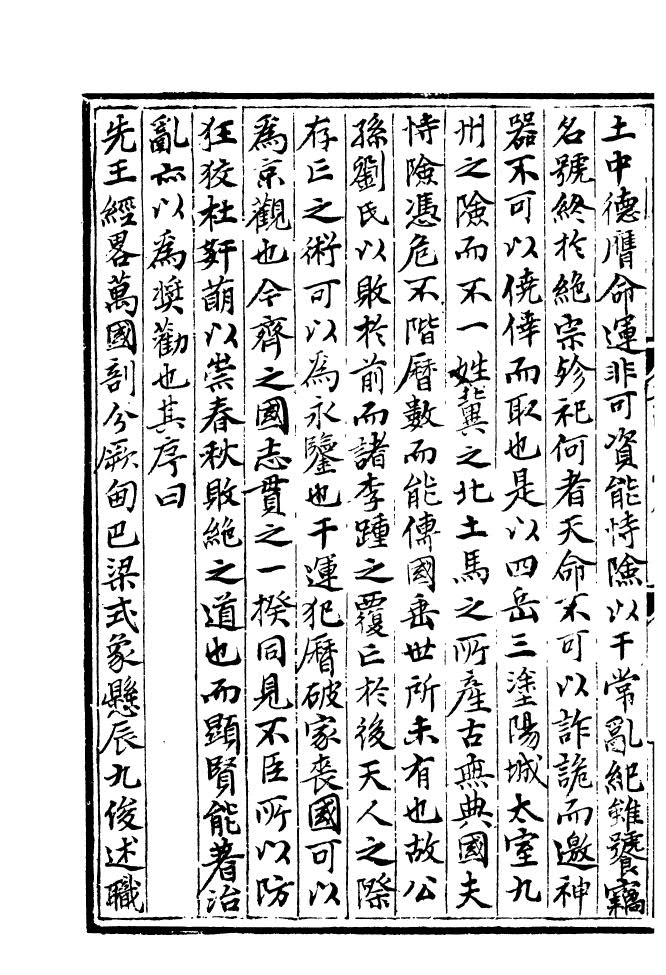 土中德膺命運非可資能恃險以干常亂紀雖饕竊
名號終於絕宗殄祀何者天命不可以詐詭而邀神
器不可以僥倖而取也是以四岳三塗陽城太室九
州之險而不一姓冀之北土馬之所產古無典國夫
恃險憑危不階曆數而能傳國垂世所未有也故公
孫劉氏以敗於前而諸李踵之覆亡於後天人之際
存亡之術可以為永鑒也干運犯曆破家喪國可以
為京觀也今齊之國志貫之一揆同見不臣所以防
狂狡杜奸萌以崇春秋敗絕之道也而顯賢能著治
亂亦以為奬勸也其序曰
先王經畧萬國剖分厥甸巴梁式象懸辰九俊述職